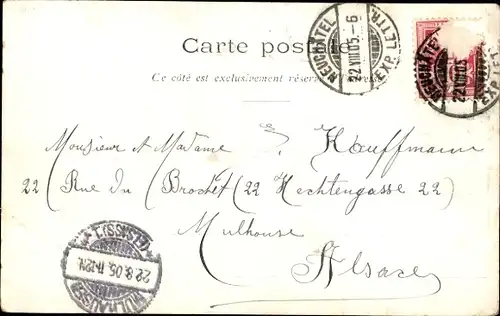 Carte postale
NEUCHÂTEL
22.VIII.05.-6
EXP. LETTR.
NEUCHÂTEL
22.VIII.05
EXP. LETTR.
Ce côté est exclusivement réservé à l'adresse
Monsieur et Madame E. Kauffmann
22 (Rue du Brochet (22 Hechtengasse 22)
Mulhouse
Alsace
MÜLHAUSEN
22.8.05. 11-12V.
(ELSASS) 1.